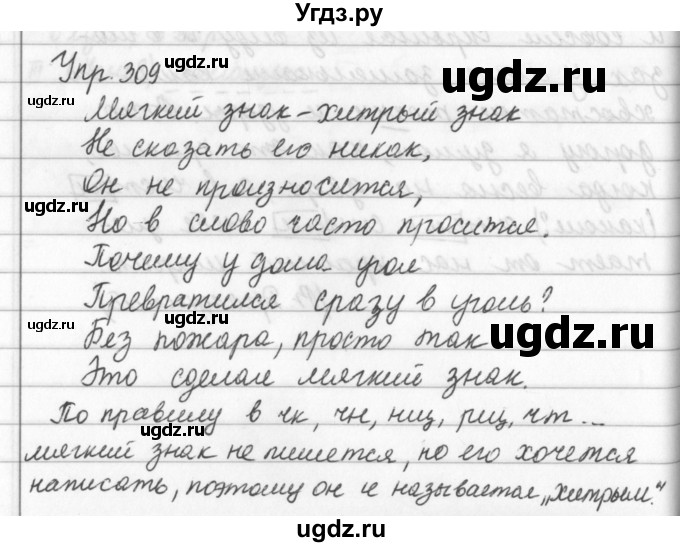 Угдз.ру
Упр. 309
ugdz.ru
ugdz.ru
Мягкий знак – хитрый знак
Не сказать его никак,
Он не произносится,
ugdz.ru
ugdz.ru
Но в слово часто просится.
Почему у дома угол
Превратился сразу в уголь?
ugdz.ru
ugdz.ru
Без пожара, просто так
ugdz.ru
Это сделал мягкий знак.
По правилу в чк, чн, нщ, рщ, чт ...
ugdz.ru
мягкий знак не пишется, но его хочется
написать, поэтому он и называется „хитрым."
ugdz.ru
ugdz.ru